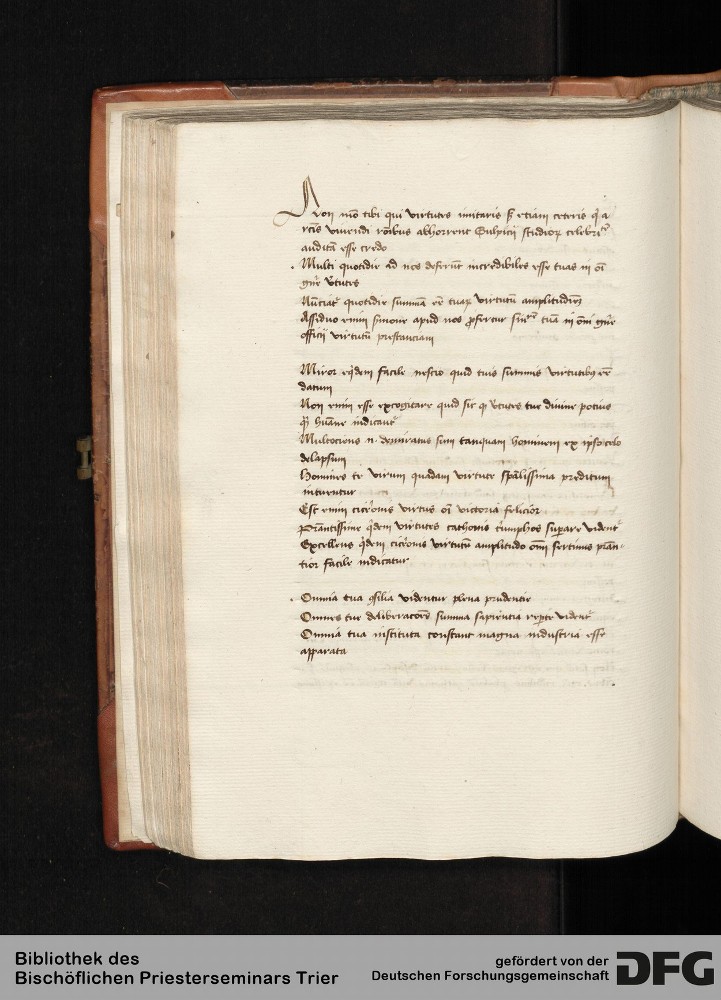 Non mo tibi qui virtutes imitaris s etiam ceteris q a
viuendi abhorrent Sulpicii studior celebri
auditā esse credo
Multi quotidie ad nos deferūt incredibiles esse tuas in oī
gn̄e v̄tutes
Nūciat quotidie summā eē tuarꝫ virtutū amplitudinē
Assiduo enim sermone apud nos ꝓfertur tua in omi gn̄e
officii virtutū prestanciam
Miror eqdem facile nescio quid tuis summis virtutibꝫ eē
datum
Non enim esse excogitare quid sit v̄tutes tue diuine potius
ꝙ hūane indicant
Multociens n. demiratus sum tanquam hominem ex ipso celo
delapsum
Homines te virum quadam virtute preditum
intuentur
Est enim ciceronis virtus oī victoria felicior
qdem virtutes cathonis triumphos suꝑare vident
Excellens qdem ciceronis virtutū amplitudo omi
tior facile iudicatur
Omnia tua ꝯsilia videntur plena prudentie
Omnes tue summa sapientia vident
Omnia tua instituta constant magna industria esse
apparata
Bibliothek des
Bischöflichen Priesterseminars Trier
gefördert von der
Deutschen Forschungsgemeinschaft
DFG